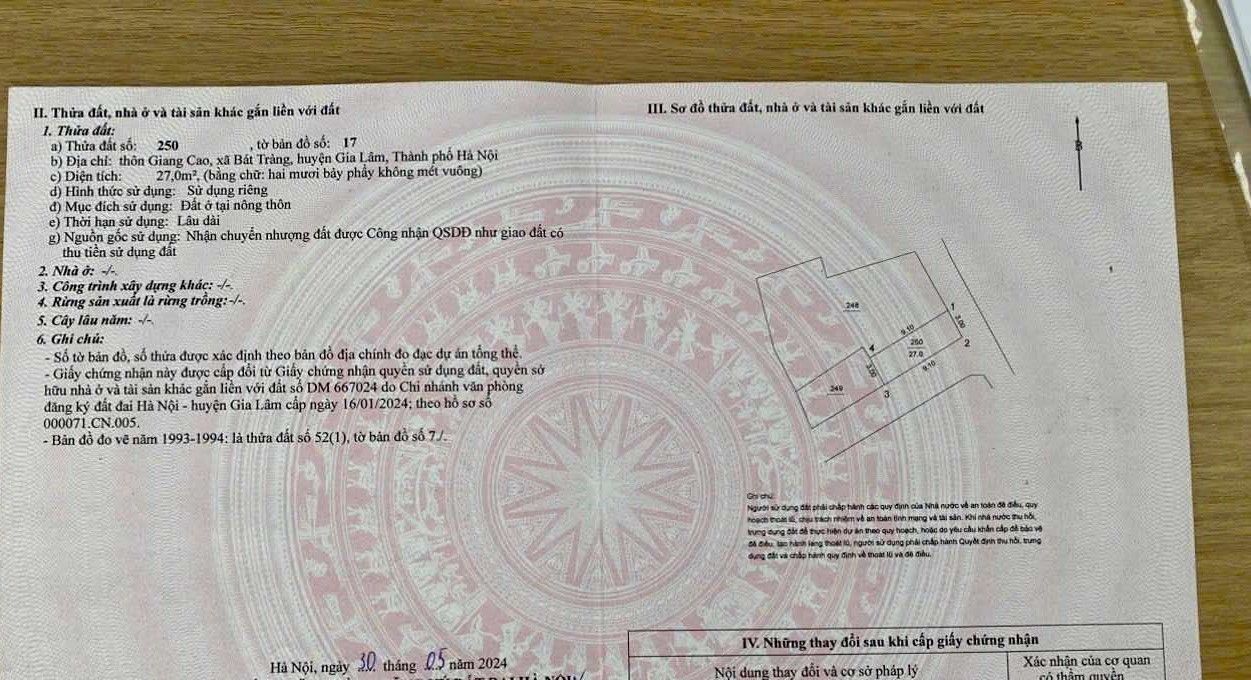 II. Thửa đất, nhà ở và tài sản khác gắn liền với đất
1. Thửa đất:
a) Thửa đất số: 250 , tờ bản đồ số: 17
b) Địa chỉ: thôn Giang Cao, xã Bát Tràng, huyện Gia Lâm, Thành phố Hà Nội
c) Diện tích: 27,0m², (bằng chữ: hai mươi bảy phẩy không mét vuông)
d) Hình thức sử dụng: Sử dụng riêng
đ) Mục đích sử dụng: Đất ở tại nông thôn
e) Thời hạn sử dụng: Lâu dài
g) Nguồn gốc sử dụng: Nhận chuyển nhượng đất được Công nhận QSDĐ như giao đất có
thu tiền sử dụng đất
2. Nhà ở: -/-.
3. Công trình xây dựng khác: -/-.
4. Rừng sản xuất là rừng trồng:-/-.
5. Cây lâu năm: -/-.
6. Ghi chú:
- Số tờ bản đồ, số thửa được xác định theo bản đồ địa chính đo đạc dự án tổng thể.
- Giấy chứng nhận này được cấp đổi từ Giấy chứng nhận quyền sử dụng đất, quyền sở
hữu nhà ở và tài sản khác gắn liền với đất số DM 667024 do Chi nhánh văn phòng
đăng ký đất đai Hà Nội - huyện Gia Lâm cấp ngày 16/01/2024; theo hồ sơ số
000071.CN.005.
- Bản đồ đo vẽ năm 1993-1994: là thửa đất số 52(1), tờ bản đồ số 7./.
Hà Nội, ngày 30 tháng 05 năm 2024
III. Sơ đồ thửa đất, nhà ở và tài sản khác gắn liền với đất
B
248
1
9.10
3.00
250
27.0
2
4
9.10
3.00
249
3
Ghi chú:
Người sử dụng đất phải chấp hành các quy định của Nhà nước về an toàn đê điều, quy
hoạch thoát lũ, chịu trách nhiệm về an toàn tính mạng và tài sản. Khi nhà nước thu hồi,
trưng dụng đất để thực hiện dự án theo quy hoạch, hoặc do yêu cầu khẩn cấp để bảo vệ
đê điều, tạo hành lang thoát lũ, người sử dụng phải chấp hành Quyết định thu hồi, trưng
dụng đất và chấp hành quy định về thoát lũ và đê điều.
IV. Những thay đổi sau khi cấp giấy chứng nhận
Nội dung thay đổi và cơ sở pháp lý
Xác nhận của cơ quan
có thẩm quyền